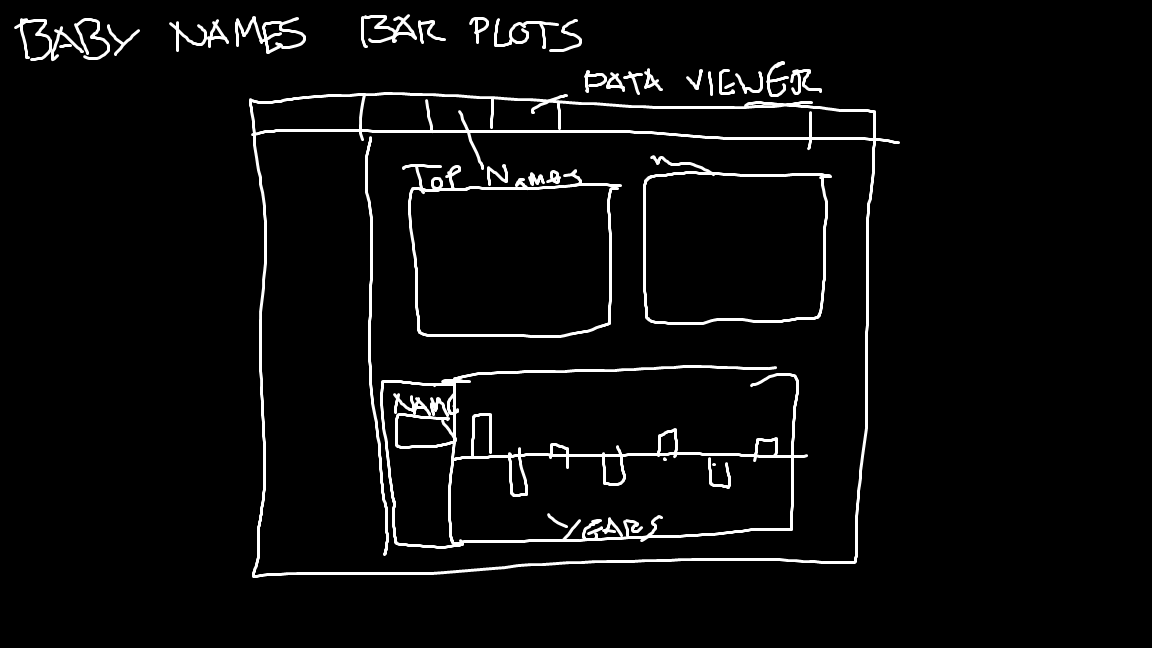 BABY NAMES BAR PLOTS
DATA VIEWER
TOP NAMES
NAME
YEARS